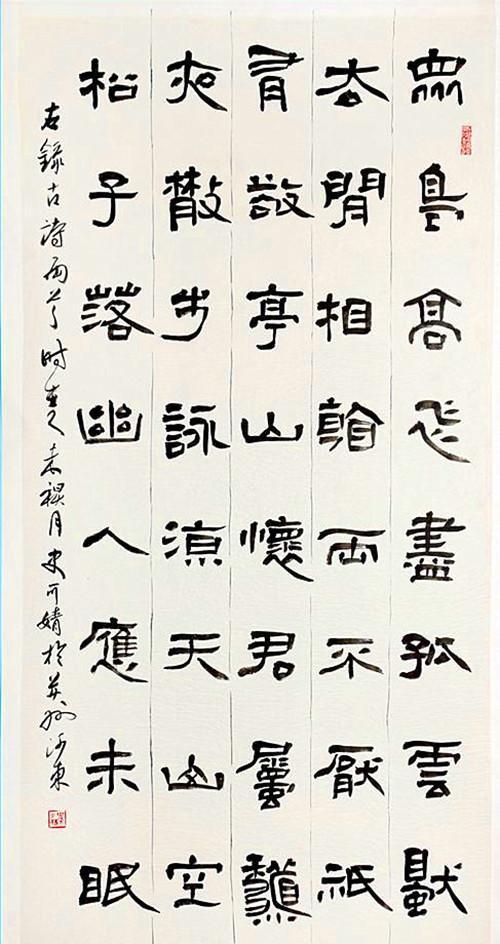 眾鳥高飛盡孤雲獨
去閒相看兩不厭祇
有敬亭山懷君屬龝
夜散步詠涼天山空
松子落幽人應未眠
右錄古詩兩首时癸未禊月史可婧於并州汾東